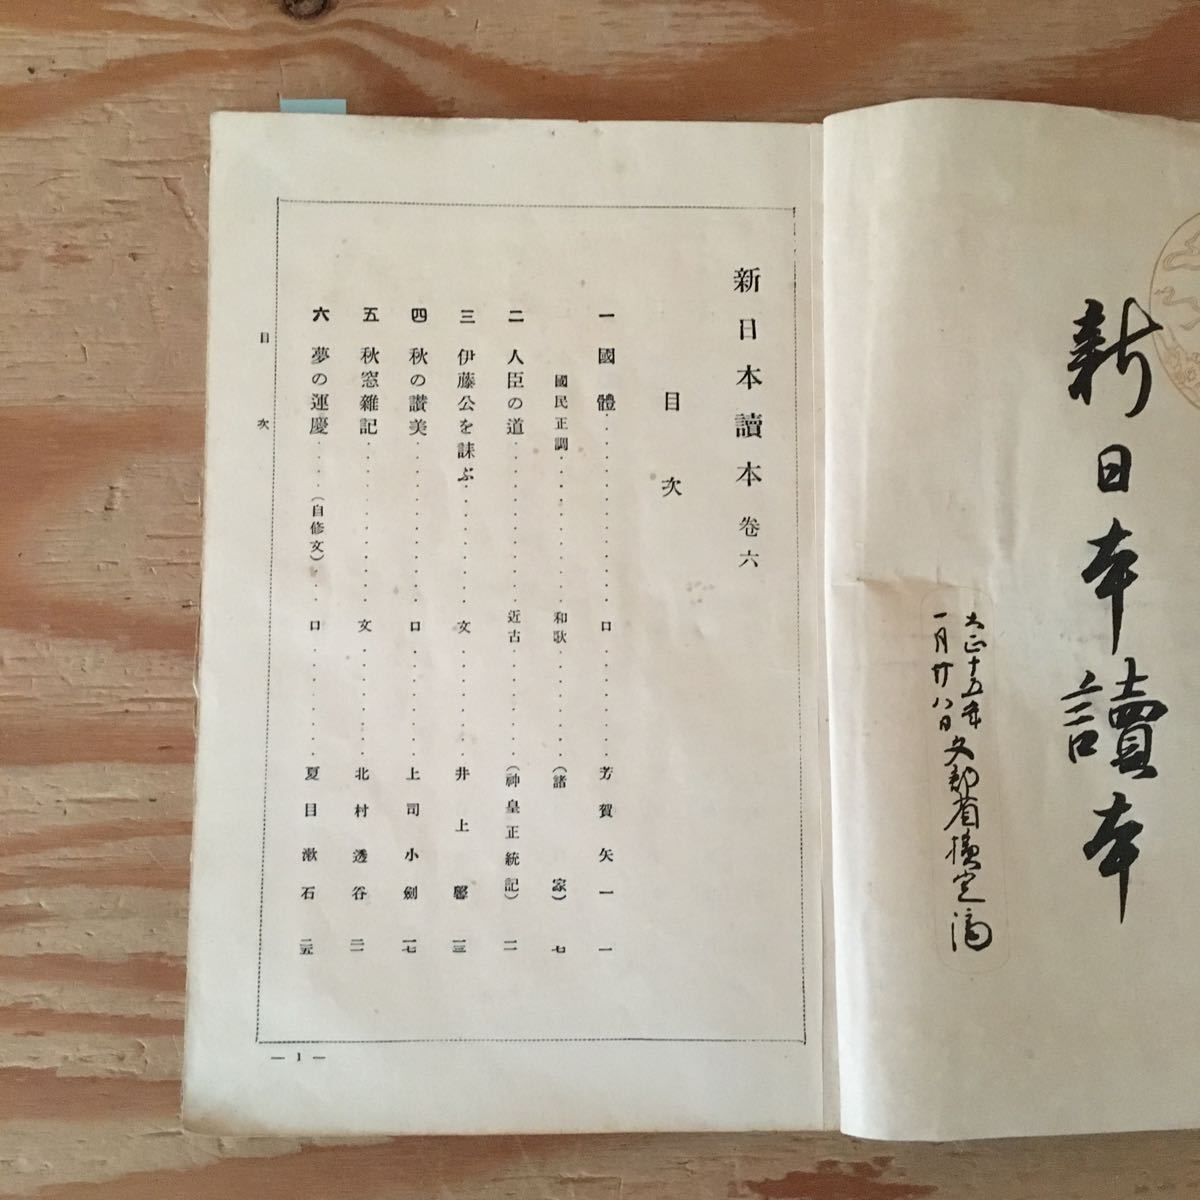 新日本讀本
大正十五年
一月廿八日文部省檢定濟
新日本讀本 卷六
目次
一 國體 口 芳賀矢一 一
國民正調 和歌 (諸家) 七
二 人臣の道 近古 (神皇正統記) 一一
三 伊藤公を誄ぶ 文 井上馨 一三
四 秋の讃美 口 上司小劍 一七
五 秋窓雜記 文 北村透谷 二一
六 夢の運慶 (自修文) 口 夏目漱石 二五
目次
— 1 —